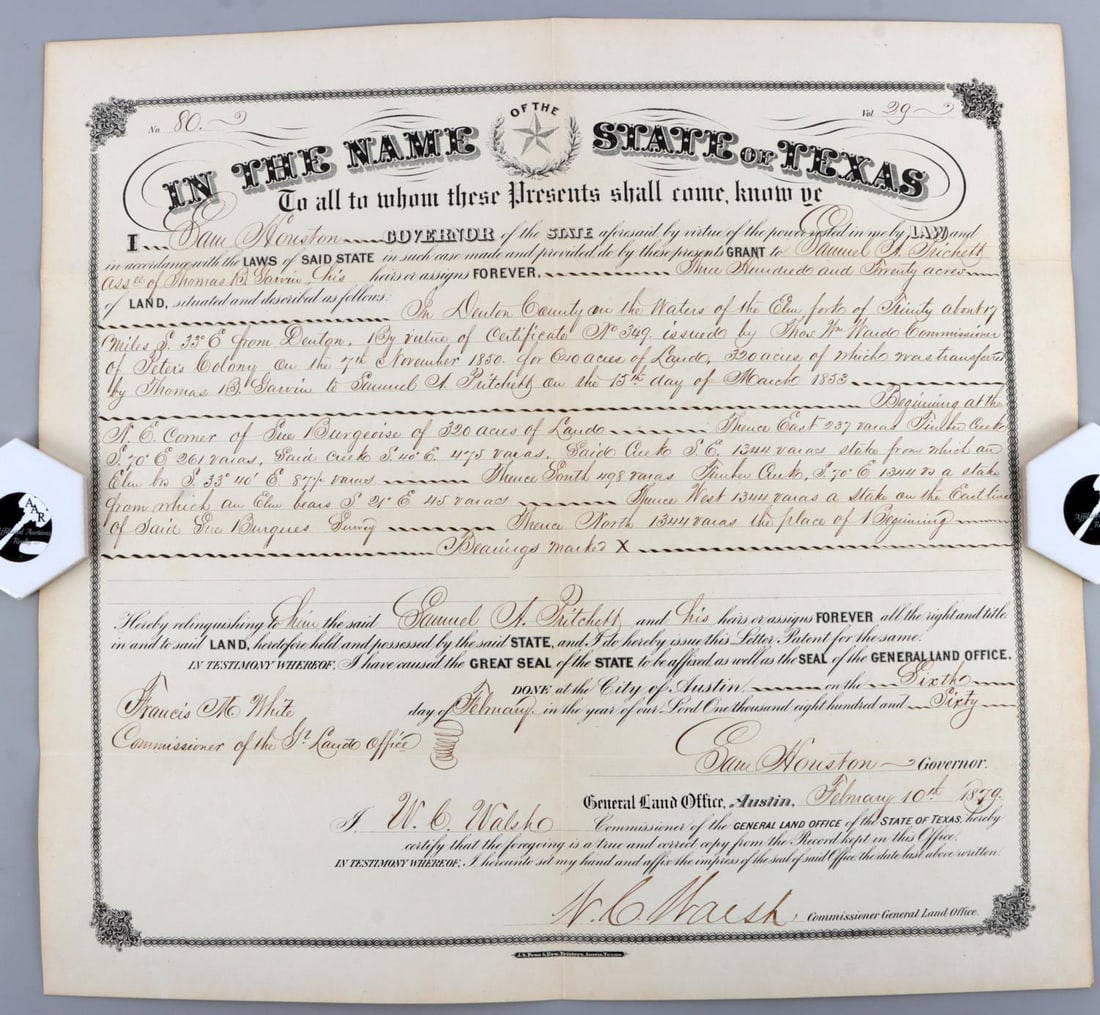 No. 80. Vol. 29
OF THE
IN THE NAME STATE OF TEXAS
To all to whom these Presents shall come, know ye
I Sam Houston GOVERNOR of the STATE aforesaid by virtue of the power vested in me by LAW and
in accordance with the LAWS of SAID STATE in such case made and provided do by these presents GRANT to Samuel A. Pritchett
Assee of Thomas B. Garvin, his heirs or assigns FOREVER, Three Hundred and Twenty acres
of LAND, situated and described as follows: In Denton County on the Waters of the Elm fork of Trinity about 17
Miles S. 33° E from Denton, By virtue of Certificate No 349 issued by Thos. Wm Ward Commissioner
of Peters Colony on the 7th November 1850. for 640 acres of Land, 320 acres of which was transferred
by Thomas B. Garvin to Samuel A. Pritchett on the 15th day of March 1853
Beginning at the
N. E. Corner of Burgeoise of 320 acres of Land Thence East 237 varas Timber Creek
S. 70° E 261 varas, Said Creek S. 40° E. 475 varas, Said Creek S. E. 1344 varas stake from which an
Elm brs S. 33° 40' E varas Thence South 498 varas Timber Creek, S. 70° E 1344 vs a stake
from which an Elm bears S E 45 varas Thence West 1344 varas a stake on the East line
of Said Burgues Survey Thence North 1344 varas the place of Beginning
Bearings marked X
Hereby relinquishing to him the said Samuel A. Pritchett and his heirs or assigns FOREVER all the right and title
in and to said LAND, heretofore held and possessed by the said STATE, and I do hereby issue this Letter Patent for the same.
IN TESTIMONY WHEREOF, I have caused the GREAT SEAL of the STATE to be affixed, as well as the SEAL of the GENERAL LAND OFFICE.
DONE at the City of Austin on the Sixth
Francis M White day of February in the year of our Lord One thousand eight hundred and Sixty
Commissioner of the Gl Land Office
Sam Houston Governor.
General Land Office, Austin, February 10th 1879.
I, W. C. Walsh Commissioner of the GENERAL LAND OFFICE of the STATE OF TEXAS, hereby
certify that the foregoing is a true and correct copy from the Record kept in this Office.
IN TESTIMONY WHEREOF, I hereunto set my hand and affix the impress of the seal of said Office the date last above written.
W. C. Walsh Commissioner General Land Office.
Printers, Austin, Texas